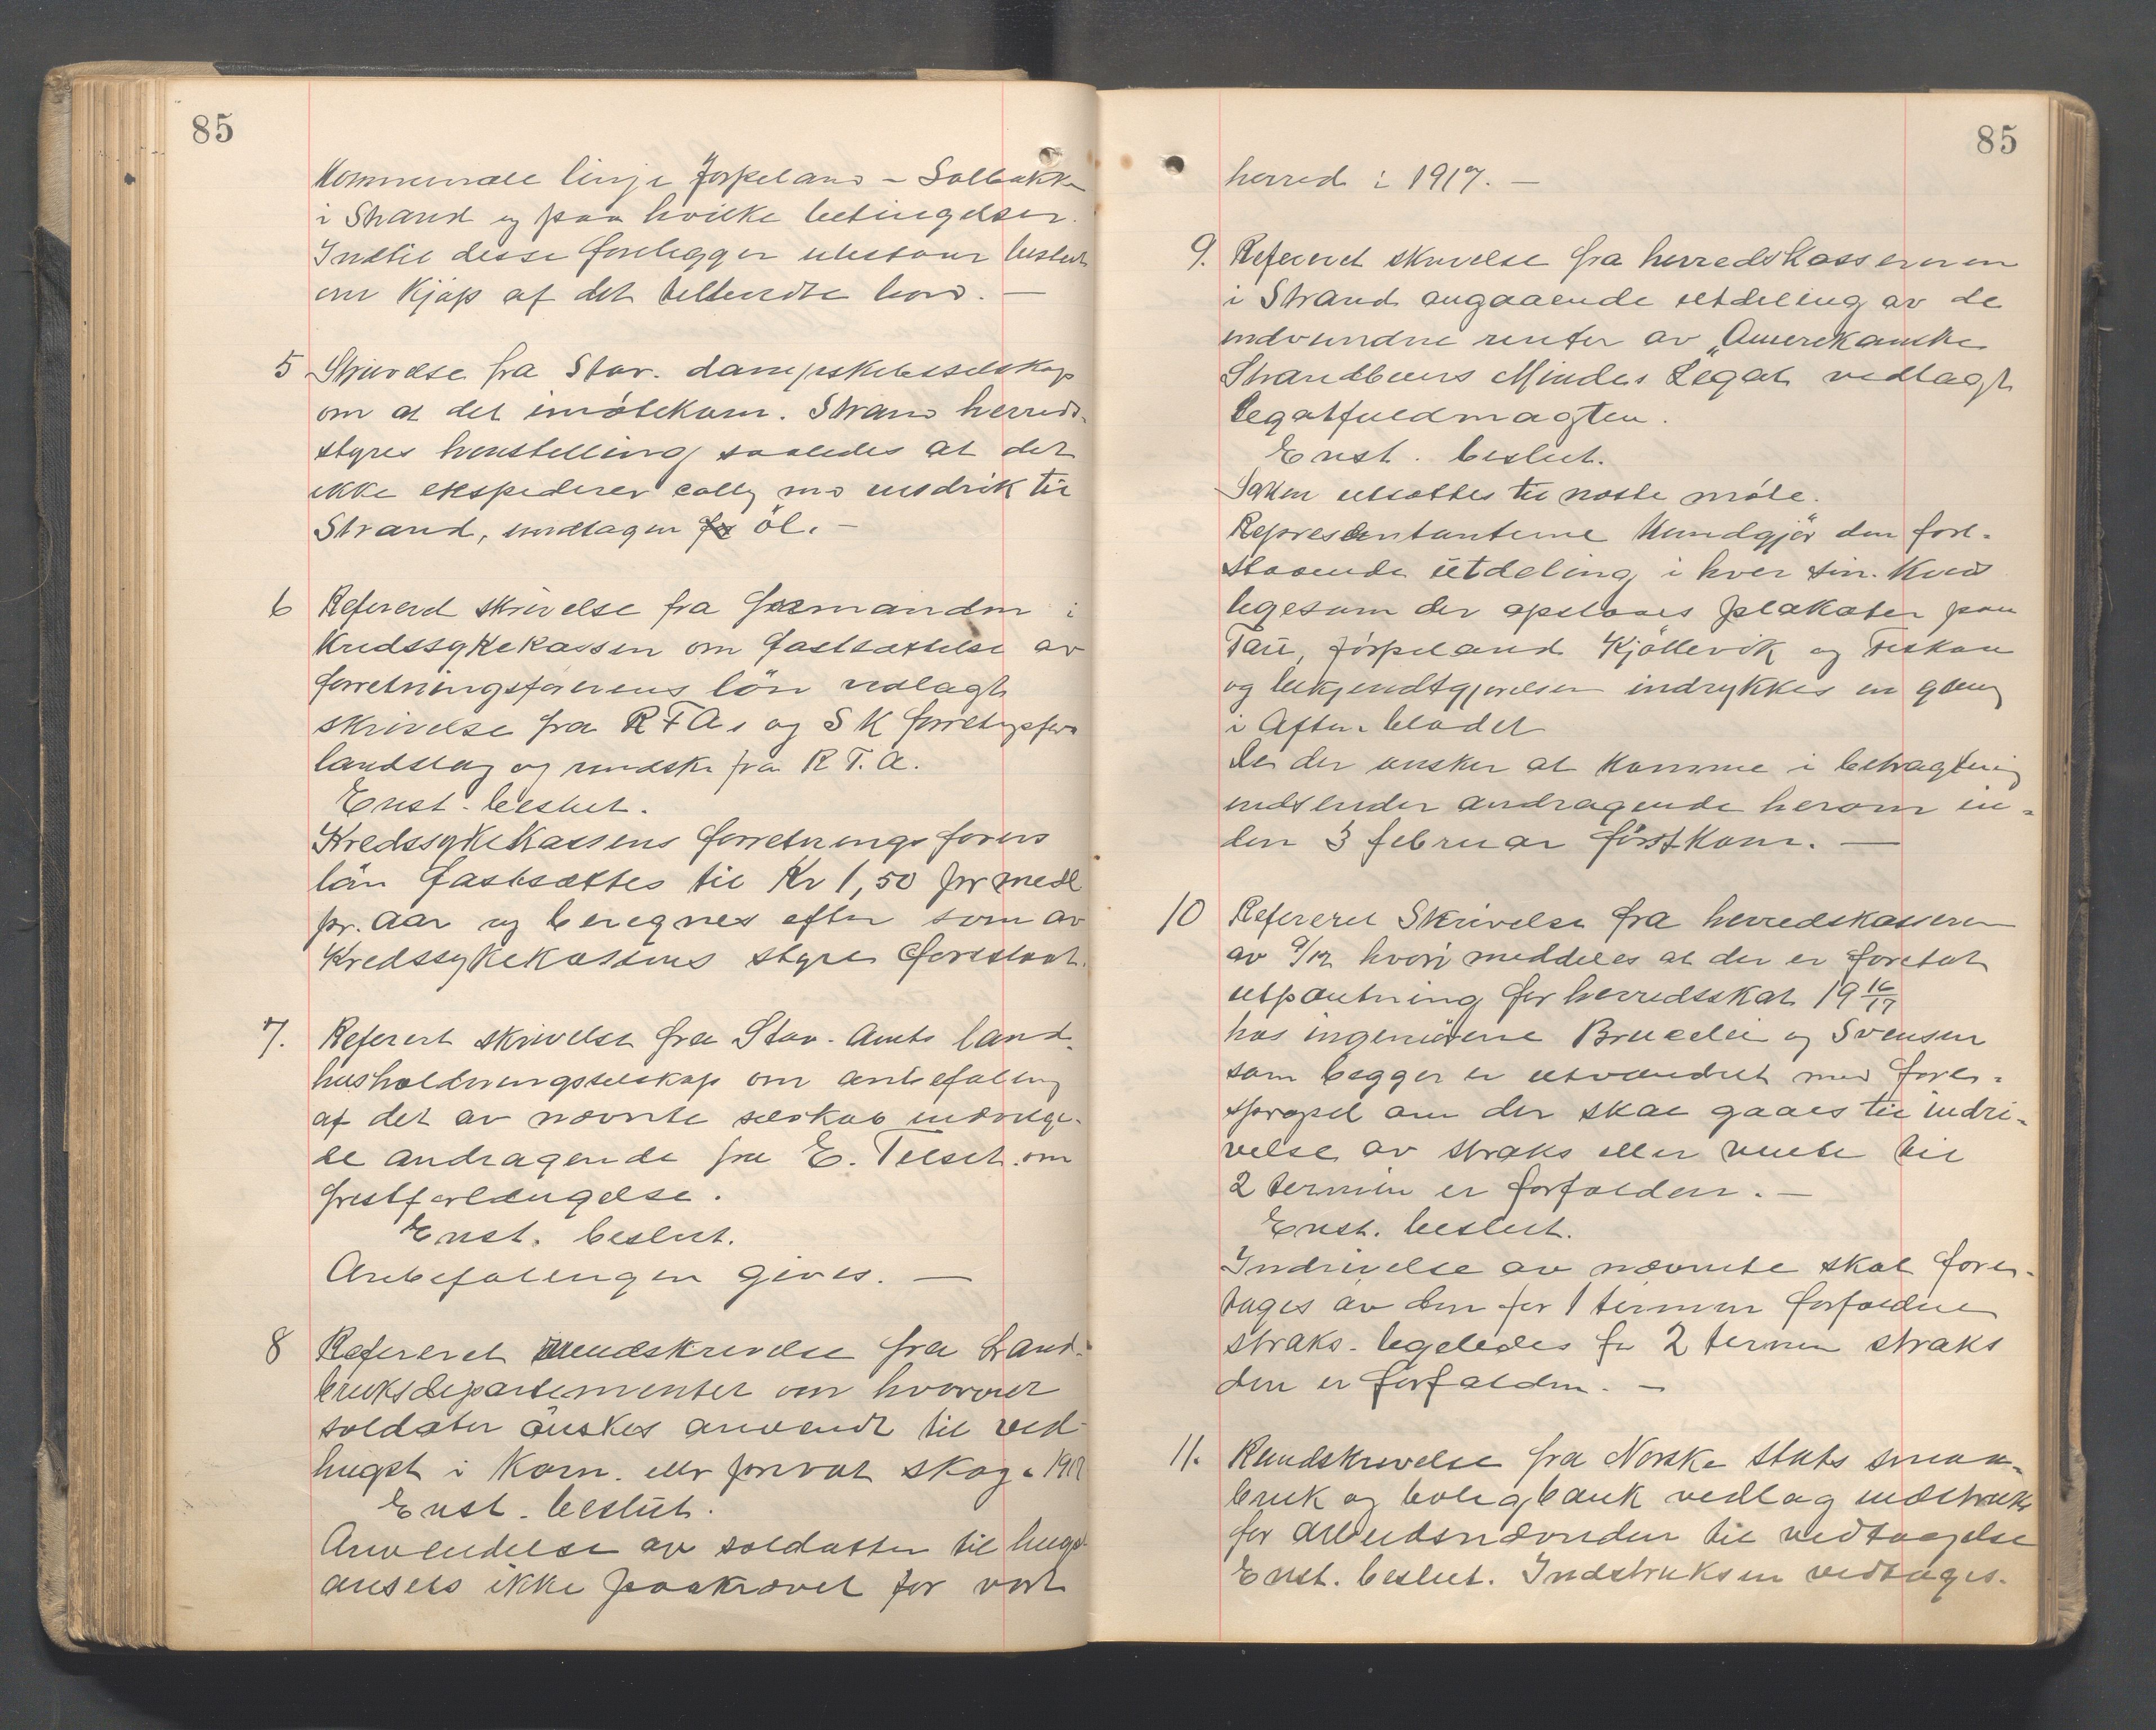 85
Kommunale linje Jørpeland - Solbakk
i Strand og paa hvilke betingelser.
Indtil disse foreligger utestaar beslut.
om kjøp af det tilbudte
5 Skrivelse fra Stav. dampskibsselskap
om at det imøtekom. Strand herreds-
styres henstilling saaledes at det
ikke ekspederer colly med rusdrik til
Strand, undtagen öl. -
6 Refererd skrivelse fra formanden i
Kredssykekassen om fastsættelse av
forretningsførerens lön vedlagt
skrivelse fra R F A. og S K forretngsfør
landslag og rundskr fra R. T. A.
Enst. beslut.
Kredssykekassens forretningsförers
lön fastsættes til Kr 1,50 pr medl
pr. aar og beregnes efter som av
Kredssykekassens styre foreslaat.
7. Referert skrivelse fra Stav. Amts land-
husholdningsselskap om anbefaling
af det av nævnte selskab indvilge-
de andragende fra E. Tilset om
fristforlængelse.
Enst. beslut.
Anbefalingen gives. -
8 Refereret rundskrivelse fra Land-
bruksdepartementet om hvorvit
soldater önskes anvendt til ved-
hugst i Kom. eller privat skog i 1917
Enst. beslut.
Anvendelse av soldatter til hugst
ansees ikke paakrævet for vort
85
herred i 1917. -
9. Refereret skrivelse fra herredskassereren
i Strand angaaende utdeling av de
indvundne renter av „Amerekanske
Strandbuers Mindes Legat vedlagt
legatfuldmagten.
Enst. beslut.
Saken utsættes til næste möte.
Representanterne kundgjör den fore-
staaende utdeling i hver sin Kreds
ligesom der opslaaes plakater paa
Tau, Jørpeland Kjöllevik og Fiskaa
og bekjendtgjørelsen indrykkes en gang
i Aften-bladet
De der ønsker at komme i betragtning
indsender andragende herom in-
den 3 februar förstkom. -
10 Refereret Skrivelse fra herredskasseren
av 9/12 hvori meddeles at der er foretat
utpantning for herredsskat 19 16/17
hos ingeniörene og Svensen
som begger er utvandret med fores-
spørgsel om der skal gaaes til indri-
velse av straks eller vente til
2 termin er forfalden. -
Enst. beslut.
Indrivelse av nævnte skat fore-
tages av den for 1 termin forfaldne
straks. ligeledes for 2 termin straks
den er forfalden. -
11. Rundskrivelse fra Norske stats smaa-
bruk og boligbank vedlag indstruks
for arbeidsnævnden til vedtagelse
Enst. beslut. Indstruksen vedtages.